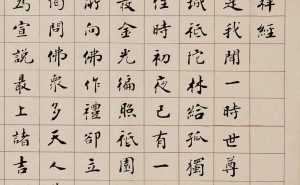 祥經
是我聞一時世尊
城祇陀林給孤獨
時初夜已有一
金光徧照祇園
所向佛作禮卻立
問佛衆多天人
宣説最上諸吉